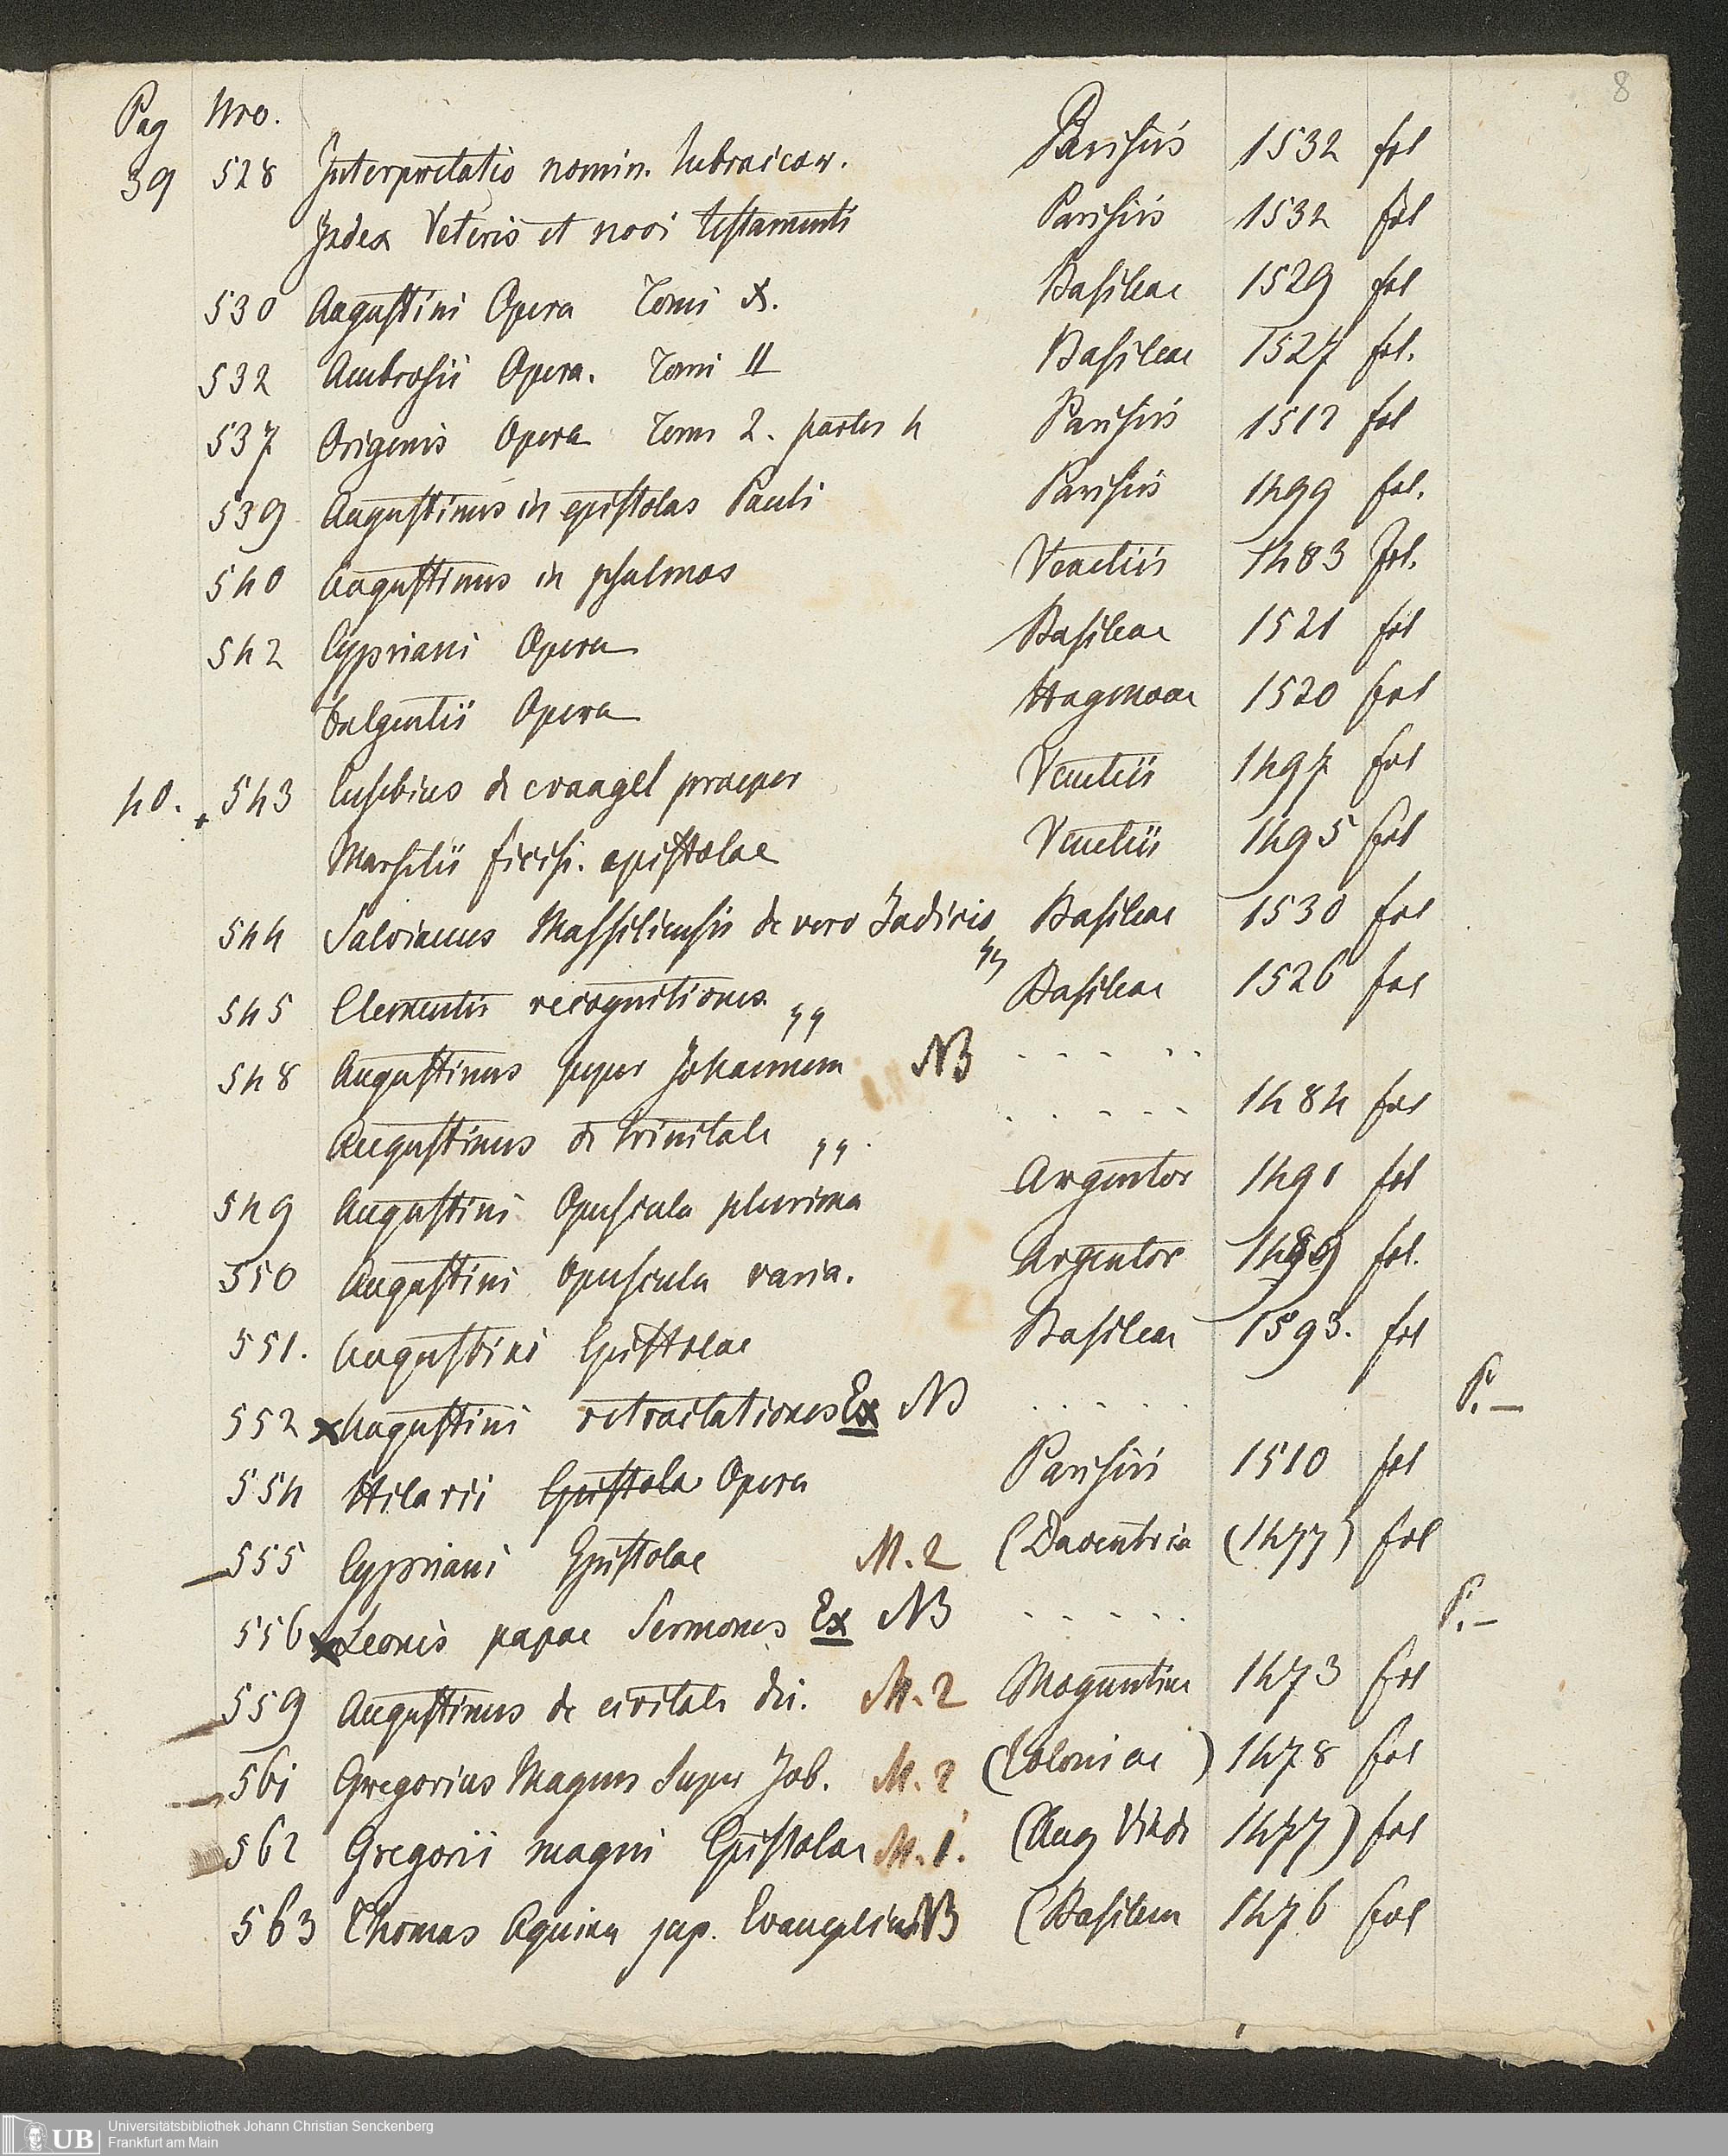 8
Pag Nro.
39 528 Interpretatio nomin. hebraicar. Parisiis 1532 fol
Index Veteris et novi testamenti Parisiis 1532 fol
530 Augustini Opera Tomi X. Basileae 1529 fol
532 Ambrosii Opera. Tomi II Basileae 1527 fol.
537 Origenis Opera Tom 2. partes 4 Parisiis 1512 fol
539 Augustinus in epistolas Pauli Parisiis 1499 fol.
540 Augustinus in psalmos Venetiis 1483 Fol.
542 Cypriani Opera Basileae 1521 fol
Fulgentii Opera Hagenoae 1520 fol
40. + 543 Eusebius de evangel praepar Venetiis 1497 fol
Marsilii ficisi. epistolae Venetiis 1495 fol
544 Salvianus Massiliensis de vero Judicio „ Basileae 1530 fol
545 Clementis recognitiones „ Basileae 1526 fol
548 Augustinus super Johannem NB - - - - -
Augustinus de trinitate „ . - - - - - 1484 fol
549 Augustini Opuscula plurima Argentor 1491 fol
550 Augustini opuscula varia. Argentor 1489 fol.
551. Augustini Epistolae Basileae 1593. fol
552 x Augustini retractationes Ex NB . . . . . . P. —
554 Hilarii Epistola Opera Parisiis 1510 fol
— 555 Cypriani Epistolae M. 2 (Daventria (1477) fol
556 x Leonis papae Sermones Ex NB - - - - - P. —
— 559 Augustinus de civitate dei. M. 2 Moguntiae 1473 fol
— 561 Gregorius Magnus super Job. M. 2 (Coloniae ) 1478 fol
562 Gregorii magni Epistolae M. 1. (Aug Vinde 1477) fol
563 Thomas Aquina sup. Evangelium NB (Basileae 1476 fol
UB Universitätsbibliothek Johann Christian Senckenberg
Frankfurt am Main